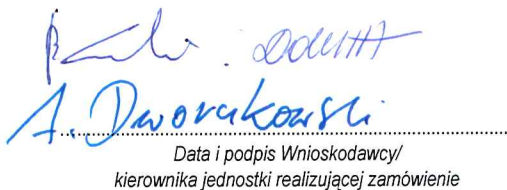 A. Dworakowski
Data i podpis Wnioskodawcy/
kierownika jednostki realizującej zamówienie